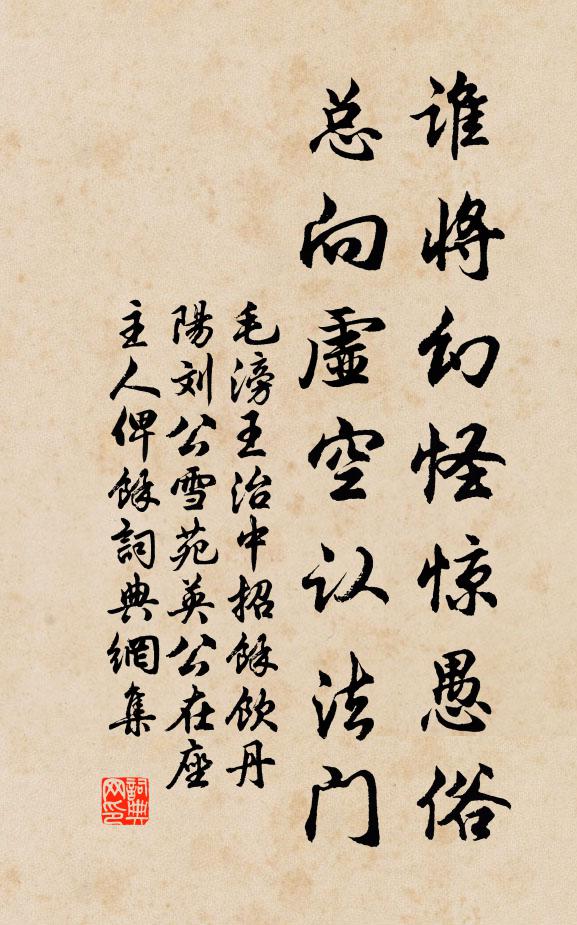 谁将幻怪惊愚俗
总向虚空认法门
毛滂王治中招馀饮丹
陽刘公雪苑英公在座
主人俾馀詞典網集
詞典
网印